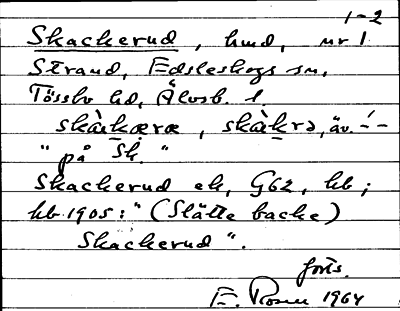 1-2
Skackerud, hmd, nr 1
Strand, Edsleskogs sn,
Tössbo hd, Älvsb. l.
skàkæræ, skàkrə, äv. ´--
"på Sk."
Skackerud ek, G62, hb;
hb 1905: "(Slätte backe)
Skackerud".
forts.
E. Rosen 1964